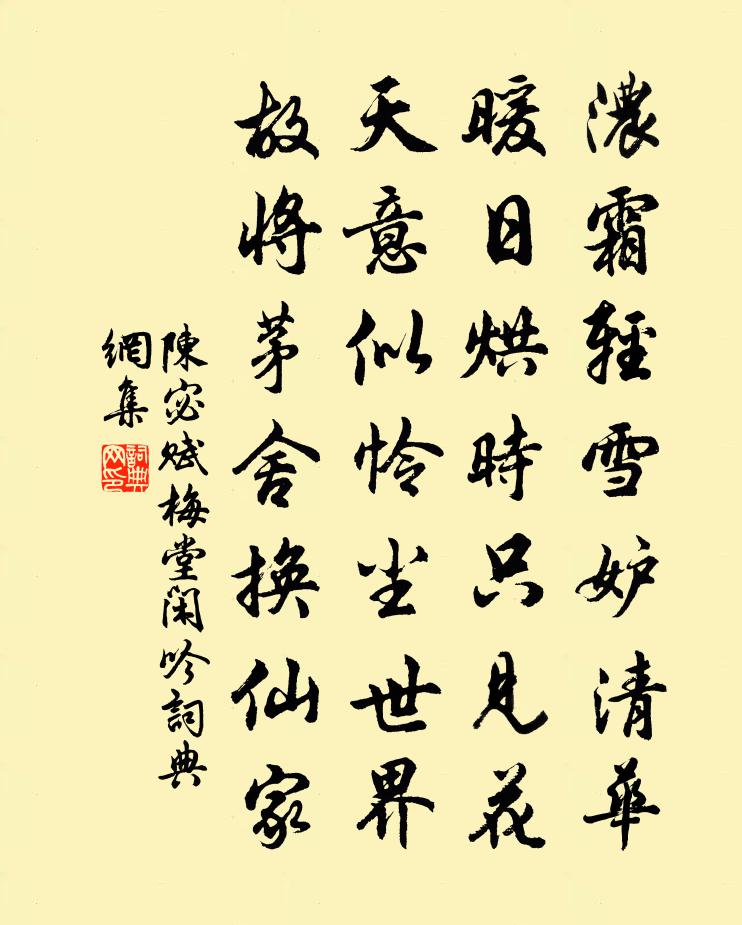 濃霜輕雪妒清華
暖日烘時只見花
天意似怜尘世界
故將茅舍換仙家
陳宓賦梅堂閑吟詞典
網集
詞典
网印